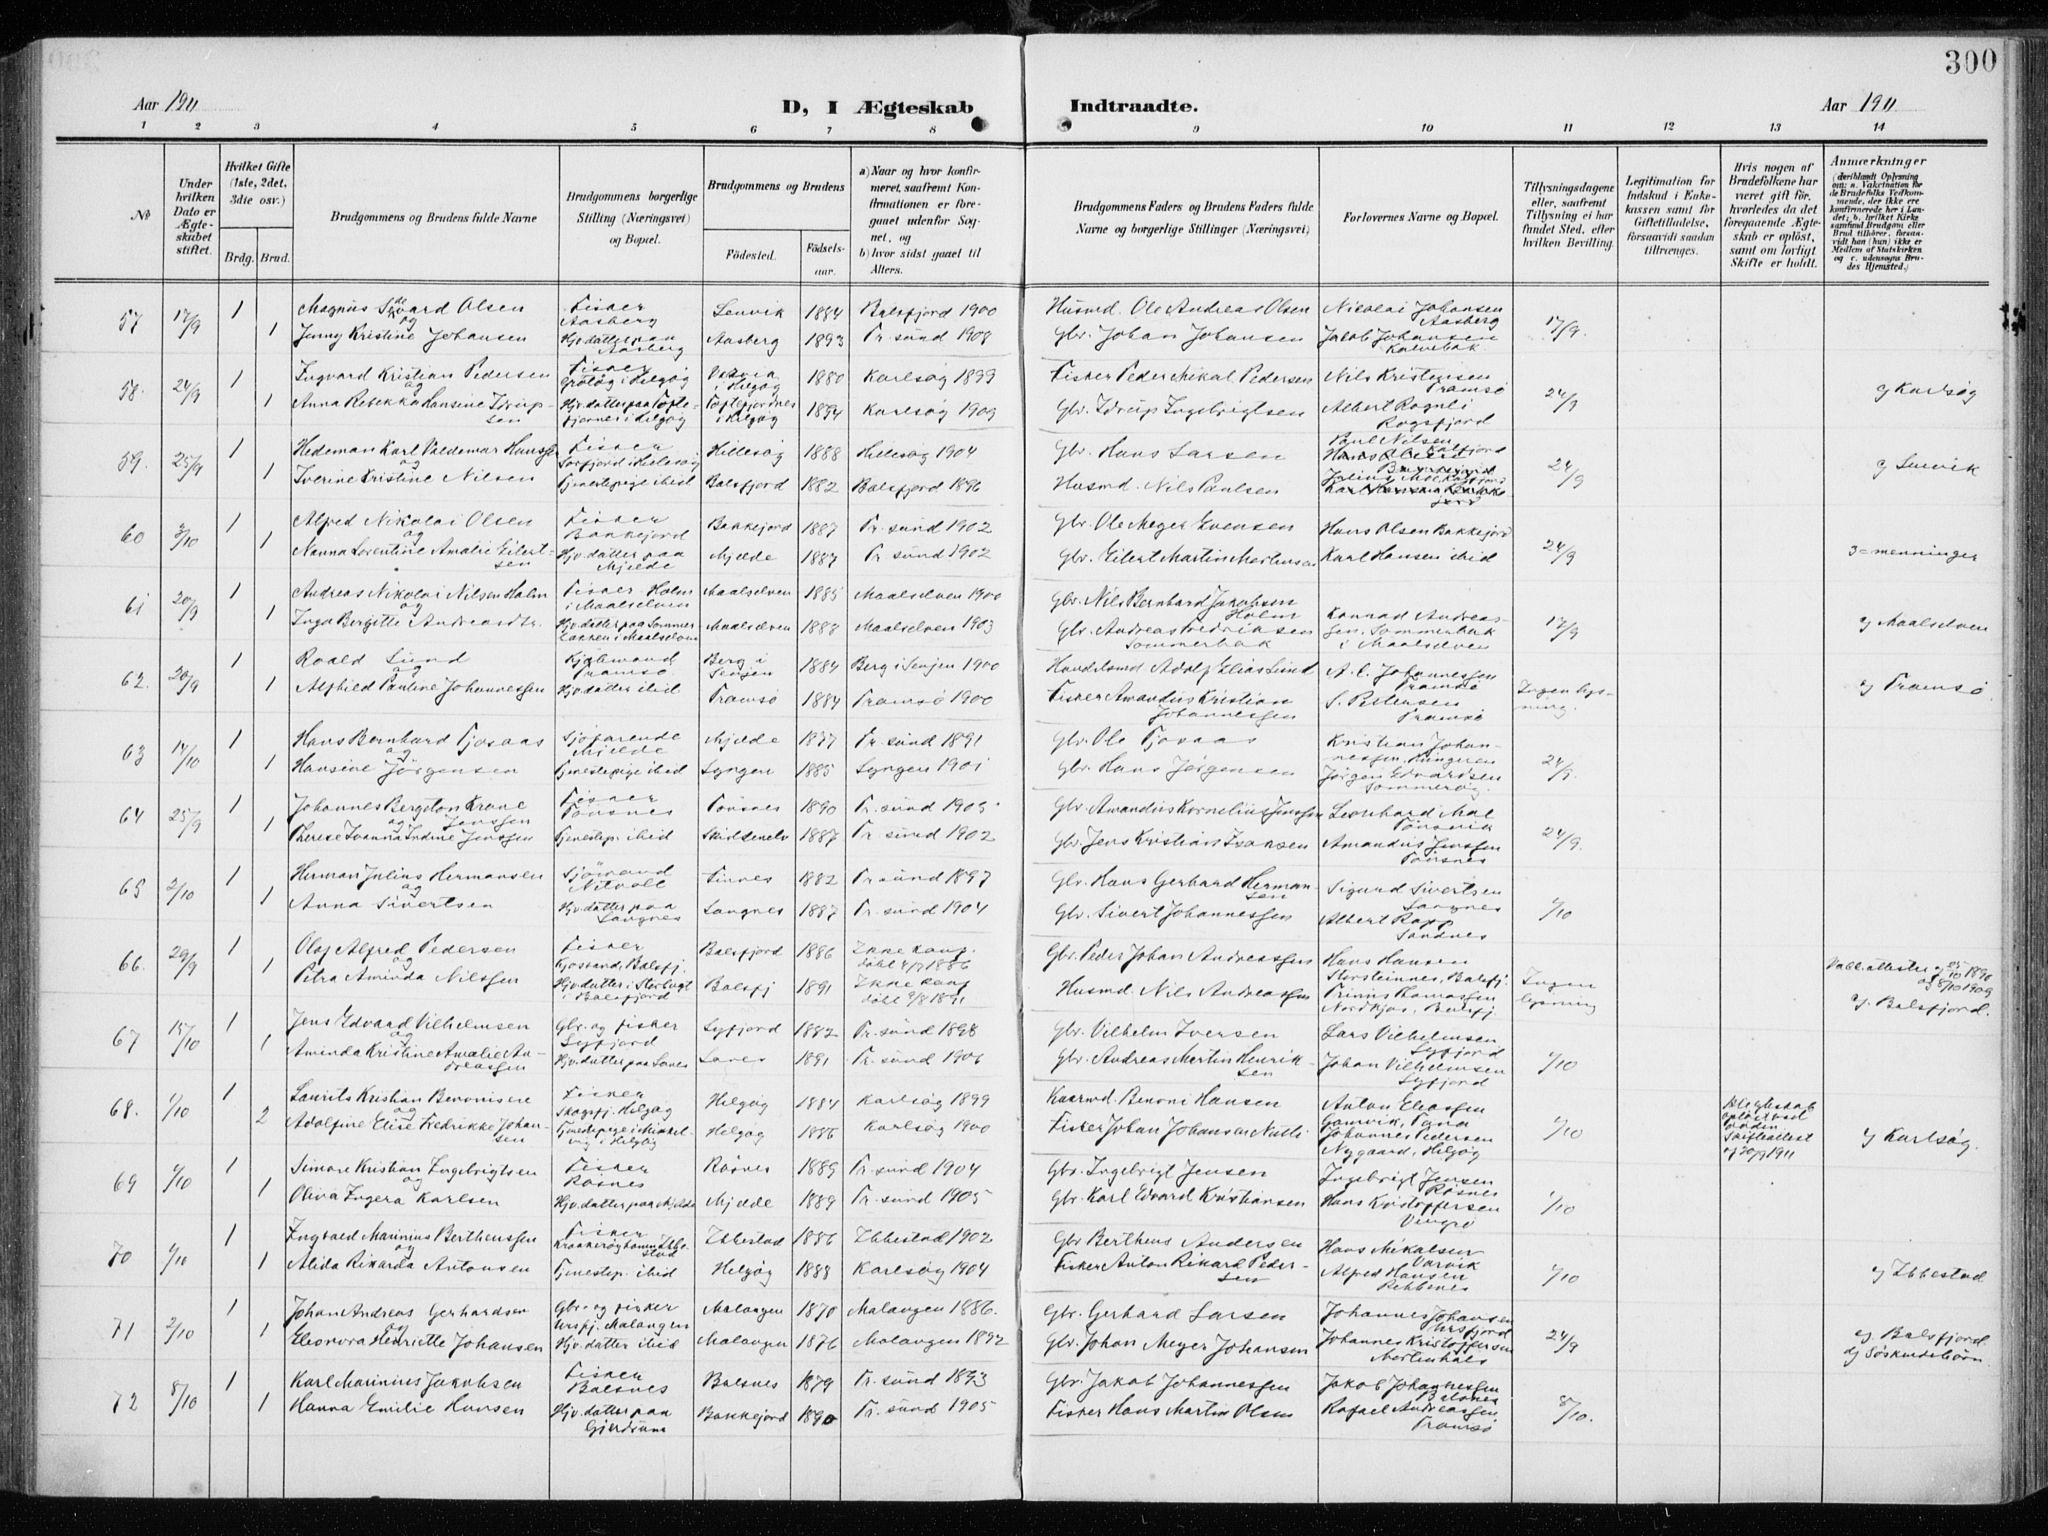 300
Aar 1911 D, I Ægteskab Indtraadte. Aar 1911
1 2 3 4 5 6 7 8 9 10 11 12 13 14
№
Under hvilken Dato er Ægteskabet stiftet.
Hvilket Gifte (1ste, 2det, 3die osv.)
Brdg. Brud.
Brudgommens og Brudens fulde Navne
Brudgommens borgerlige Stilling (Næringsvei) og Bopæl.
Brudgommens og Brudens
Födested. Födselsaar.
a) Naar og hvor konfirmeret, saafremt Konfirmationen er foregaaet udenfor Sognet, og
b) hvor sidst gaaet til Alters.
Brudgommens Faders og Brudens Faders fulde Navne og borgerlige Stillinger (Næringsvei)
Forlovernes Navne og Bopæl.
Tillysningsdagene eller, saafremt Tillysning ei har fundet Sted, efter hvilken Bevilling.
Legitimation for Indskud i Enkekassen samt for Giftetilladelse, forsaavidt saadan tiltrænges.
Hvis nogen af Brudefolkene har været gift før, hvorledes da det foregaaende Ægteskab er opløst, samt om lovligt Skifte er holdt.
Anmærkninger
57 17/9 1 Magnus Olsen Fisker Aasberg Lenvik 1884 Balsfjord 1900 Husmd. Ole Andreas Olsen Nicolai Johansen Aasberg 17/9
og
1 Jenny Kristine Johansen Hjv. datter paa Aasberg Aasberg 1893 Tr.sund 1908 Gbr. Johan Johansen Jakob Johansen
58. 24/9 1 Ingvard Kristian Pedersen Fisker Grötøy i Helgøy i Helgøy 1880 Karlsøy 1899 Fisker Peder Mikal Pedersen Nils Kristensen Tromsø 24/9 af Karlsøy
og
1 Anna Rebekka Hansine Idrupsen Hjv. datter paa i Helgøy 1894 Karlsøy 1909 Gbr. Idrup Ingebrigtsen Albert Rognli
59. 25/9 1 Hedeman Karl Valdemar Hansen Fisker Hillesøy 1888 Hillesøy 1904 Gbr. Hans Larsen Paul Nilsen 24/9 af Lenvik
og
1 Iverine Kristine Nilsen Tjenestepige ibid Balsfjord 1882 Balsfjord 1896 Husmd. Nils Paulsen
60 3/10 1 Alfred Nikolai Olsen Fisker Bakkejord Bakkejord 1887 Tr.sund 1902 Gbr. Ole Meyer Evensen Hans Olsen Bakkejord 24/9 3=menninger
og
1 Nanna Lorentine Amalie Eilertsen Hjv. datter paa Mjelde Mjelde 1887 Tr.sund 1902 Gbr. Eilert Martin Karl Hansen ibid
61 20/9 1 Andreas Nikolai Nilsen Holm Fisker Holm i Maalselven Maalselven 1885 Maalselven 1900 Gbr. Nils Bernhard Jakobsen Holm Konrad Andreassen, Sommerbak i Maalselven 17/9 af Maalselven
og
1 Inga Bergitte Andreasdtr. Hjv. datter paa Sommerbakken i Maalselven Maalselven 1888 Maalselven 1903 Gbr. Andreas Fredriksen Sommerbak
62. 20/9 1 Roald Lund Kjøbmand Tromsø Berg i Senjen 1884 Berg i Senjen 1900 Handelsmd Adolf Elias Lund A. C. Johannessen Tromsø Ingen lysning. af Tromsø
1 Alfhild Pauline Johannessen Hjv. datter ibid Tromsø 1884 Tromsø 1900 Fisker Amandus Kristian Johannessen S. Pettersen Tromsø
63 14/10 1 Hans Bernhard Tjosaas Sjøfarende Mjelde Mjelde 1877 Tr.sund 1891 Gbr. Ole Tjosaas Kristian Johannessen, 24/9.
og
1 Hansine Jørgensen Tjenestepige ibid Lyngen 1885 Lyngen 1901 Gbr. Hans Jørgensen Jørgen Edvardsen Sommerøy.
64 25/9 1 Johannes Bergeton Krane Jenssen Fisker Tønsnes Tønsnes 1890 Tr.sund 1905 Gbr. Amandus Kornelius Jenssen Leonhard Moe Tønsvik 24/9.
og
1 Therese Ivanna Indine Jenssen Tjenestep. ibid Skidtenelv 1887 Tr.sund 1902 Gbr. Jens Kristian Isaksen Amandus Jenssen Tønsnes
65 2/10 1 Herman Julius Hermansen Sjømand Finnes 1882 Tr.sund 1897 Gbr. Hans Gerhard Hermansen Sigurd Sivertsen Langnes 1/10
og
1 Anna Sivertsen Hjv. datter paa Langnes Langnes 1887 Tr.sund 1904 Gbr. Sivert Johannessen Albert Rapp Sandnes
66. 29/9 1 Olaf Alfred Pedersen Fisker Kjosvand, Balsfj. Balsfjord 1886 Ikke konf. døbt 4/7 1886 Gbr. Peder Johan Andreassen Hans Hansen Storsteinnes, Balsfj. Ingen lysning af 25/10 1890 og 8/10 1909
og
1 Petra Aminda Nilssen Hjv. datter i i Balsfjord Balsfj 1891 Ikke konf døbt 9/8 1891 Husmd. Nils Andreassen Trinus Thomassen Nordkjos, Balsfj. af Balsfjord.
67 15/10 1 Jens Edvard Vilhelmsen Gbr. og fisker Lyfjord Lyfjord 1882 Tr.sund 1898 Gbr. Vilhelm Iversen Lars Vilhelmsen Lyfjord 1/10
og
1 Aminda Kristine Amalie Andreassen Hjv. datter paa 1891 Tr.sund 1906 Gbr. Andreas Martin Henriksen Johan Vilhelmsen Lyfjord
68. 1/10 1 Laurits Kristian Benonisen Fisker Skogsfj. Helgøy Helgøy 1884 Karlsøy 1899 Benoni Hansen Anton Eliassen Gamvik, Tana 1/10 Skifteattest af 20/9 1911 af Karlsøy.
og
2 Adolfine Elise Fredrikke Johansen Tjenestepige i i Helgøy Helgøy 1886 Karlsøy 1900 Fisker Johan Johansen Johannes Pedersen Nygaard, Helgøy
69 1/10 1 Simon Kristian Ingebrigtsen Fisker Røsnes Røsnes 1889 Tr.sund 1904 Gbr. Ingebrigt Jensen Ingebrigt Jensen Røsnes 1/10
og
1 Oliva Ingera Karlsen Hjv. datter paa Mjelde Mjelde 1889 Tr.sund 1905 Gbr. Karl Edvard Kristiansen Hans Kristoffersen
70 1/10 1 Ingvald Marinius Bertheussen Fisker Ibbestad 1886 Ibbestad 1902 Gbr. Bertheus Andersen Hans Mikalsen 1/10 af Ibbestad
og
1 Alida Rikarda Antonsen Tjenestep. ibid Helgøy 1888 Karlsøy 1904 Fisker Anton Rikard Pedersen Alfred Hansen Rebbenes
71 2/10 1 Johan Andreas Gerhardsen Gbr. og fisker Malangen Malangen 1870 Malangen 1886. Gbr. Gerhard Larsen Johannes Johansen 24/9 af Balsfjord
og
1 Eleonora Henriette Johansen Hjv. datter ibid Malangen 1876 Malangen 1892 Gbr. Johan Meyer Johansen Johannes Kristoffersen Mortenhals Søskendebørn.
72 8/10 1 Karl Marinius Jakobsen Fisker Balsnes Balsnes 1879 Tr.sund 1893 Gbr. Jakob Johannessen Jakob Johannessen Balsnes 8/10.
1 Hanna Emilie Hansen Hjv. datter paa Gjerdrum Bakkejord 1890 Tr.sund 1905 Fisker Hans Martin Olsen Rafael Andreassen Tromsø